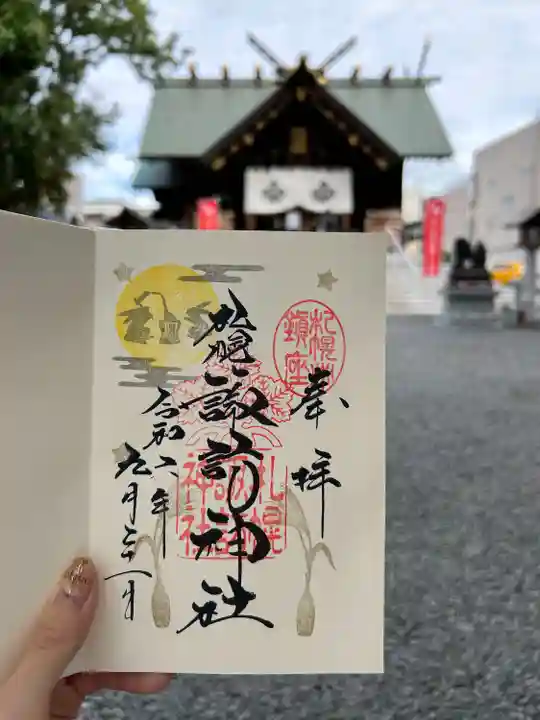 奉拝
札幌
鎮座
札幌諏訪神社
札幌
諏訪
神社
令和二年
九月二十一日